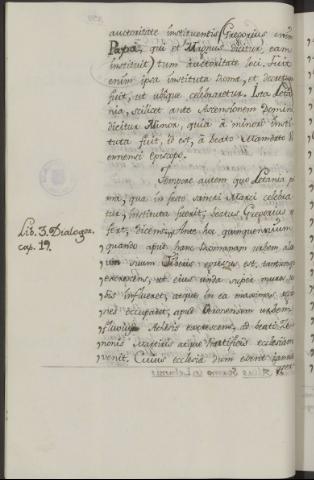 auctoritate instituentis (Gregorius enim
Papa, qui et Magnus dicitur, eam
instituit) tum auctoritate loci. Fuit
enim ipsa instituta Romæ, et decretum
fuit, ut ubique celebraretur. Ista
nia, scilicet ante Ascensionem Domini
dicitur Minor, quia à minori insti-
tuta fuit, id est, à beato Mamberto Vi-
ennensi Episcopo.
Tempore autem quo Letania
ma, qua in festo sancti Marci celebra-
tur, instituta fuerit, beatus Gregorius
fert, dicens, Ante hoc quinquennium
Lib. 3. Dialogor.
cap. 19.
quando apud hanc Romanam urbem
suum Tiberis egressus est, tantum
excrescens, ut eius unda super muros
influeret, atque in ea maximas
occuparet, apud Veronensem urbem
fluvius Athesis excrescens, ad beati
nonis Martiris atque Pontificis ecclesiam
venit. Cuius ecclesia dum essent